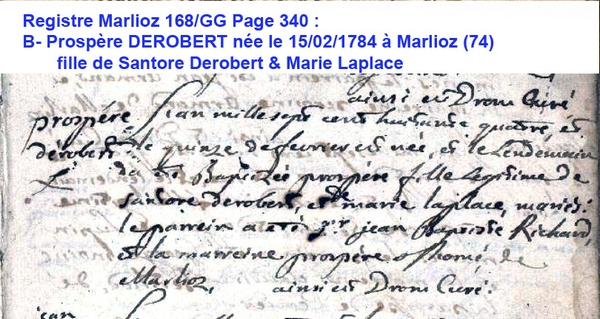 Registre Marlioz 168/GG Page 340 :
B- Prospère DEROBERT née le 15/02/1784 à Marlioz (74)
fille de Santore Derobert & Marie Laplace
ainsi est Drom Curé
prospère
derobert
L'an mille sept cent huitante quatre, et
le quinze de fevrier est née, et le lendemain
a été Baptisée prospère fille legitime de
santore derobert et marie laplace, mariés:
le parrein a été jean Baptiste Richard,
et la marreine prospère thomé de
Marlioz. ainsi est Drom Curé.
jean